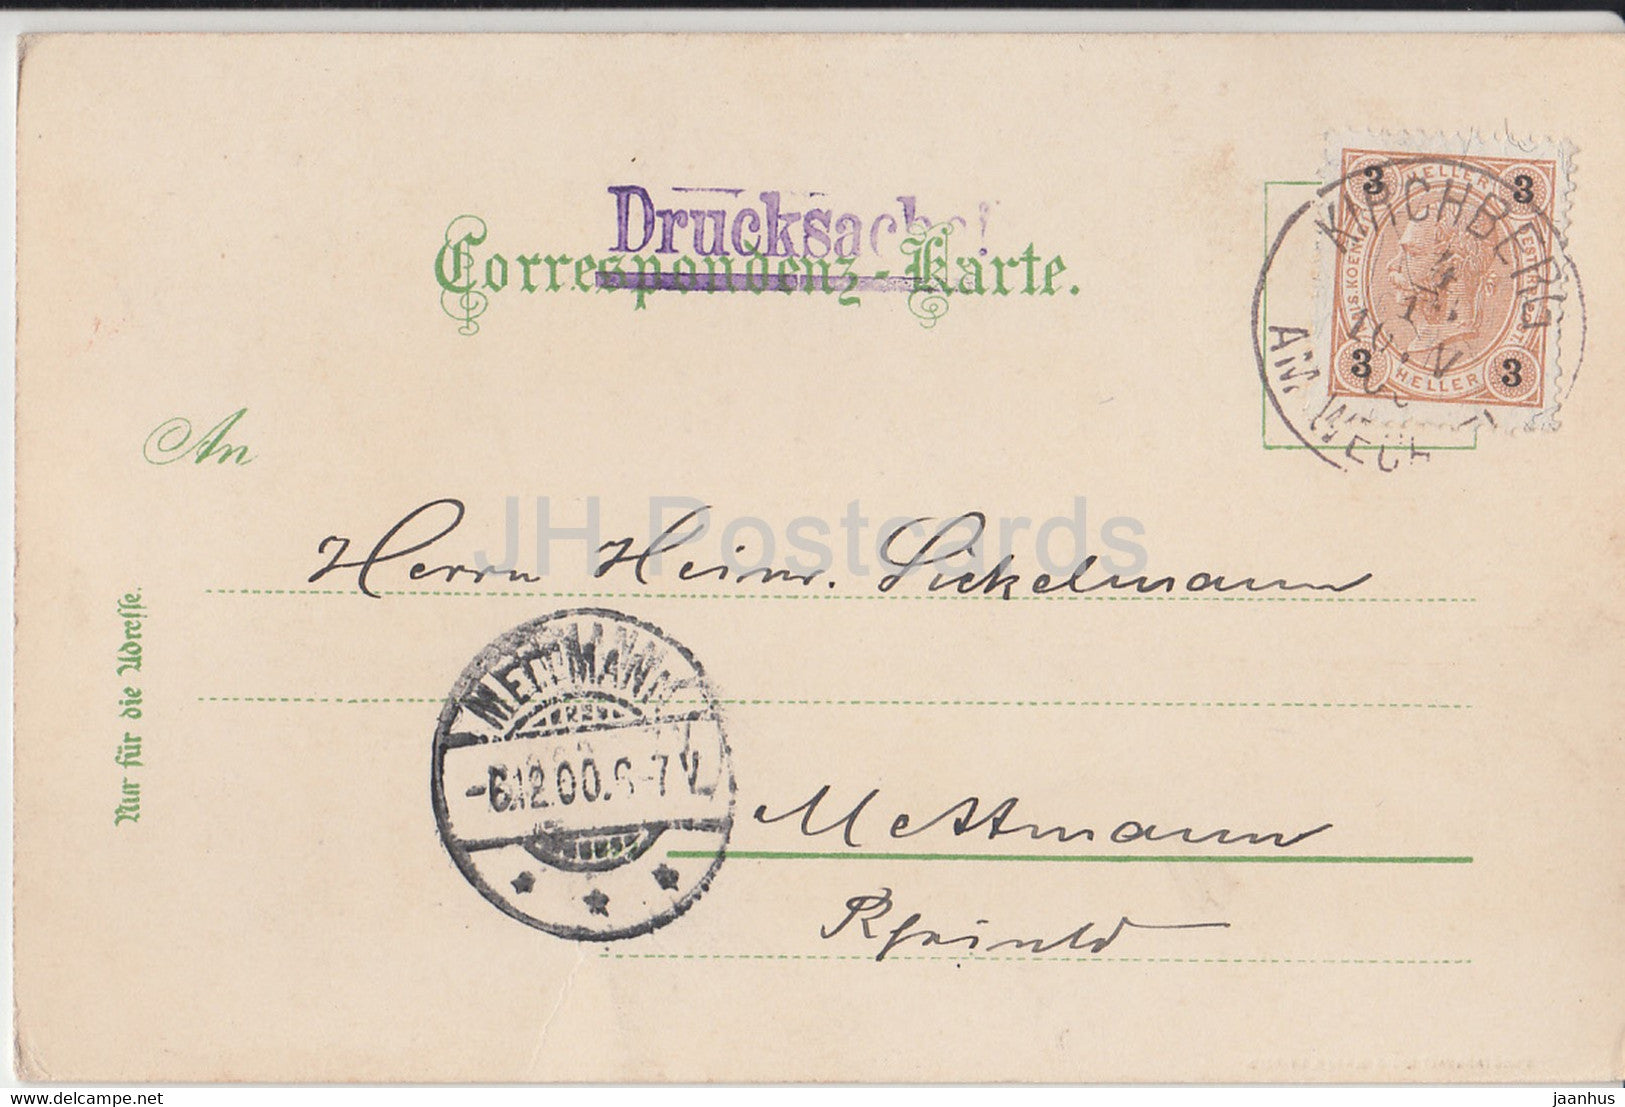 Drucksache!
Correspondenz-Karte.
3 HELLER 3
3 HELLER 3
KIRCHBERG
AM WECH
An
JH Postcards
Herrn Heinr. Sickelmann
Nur für die Adresse.
METTMANN
-6.12.00.6-7V.
Mettmann
Rheinld
hippostcard.com
jaanhus